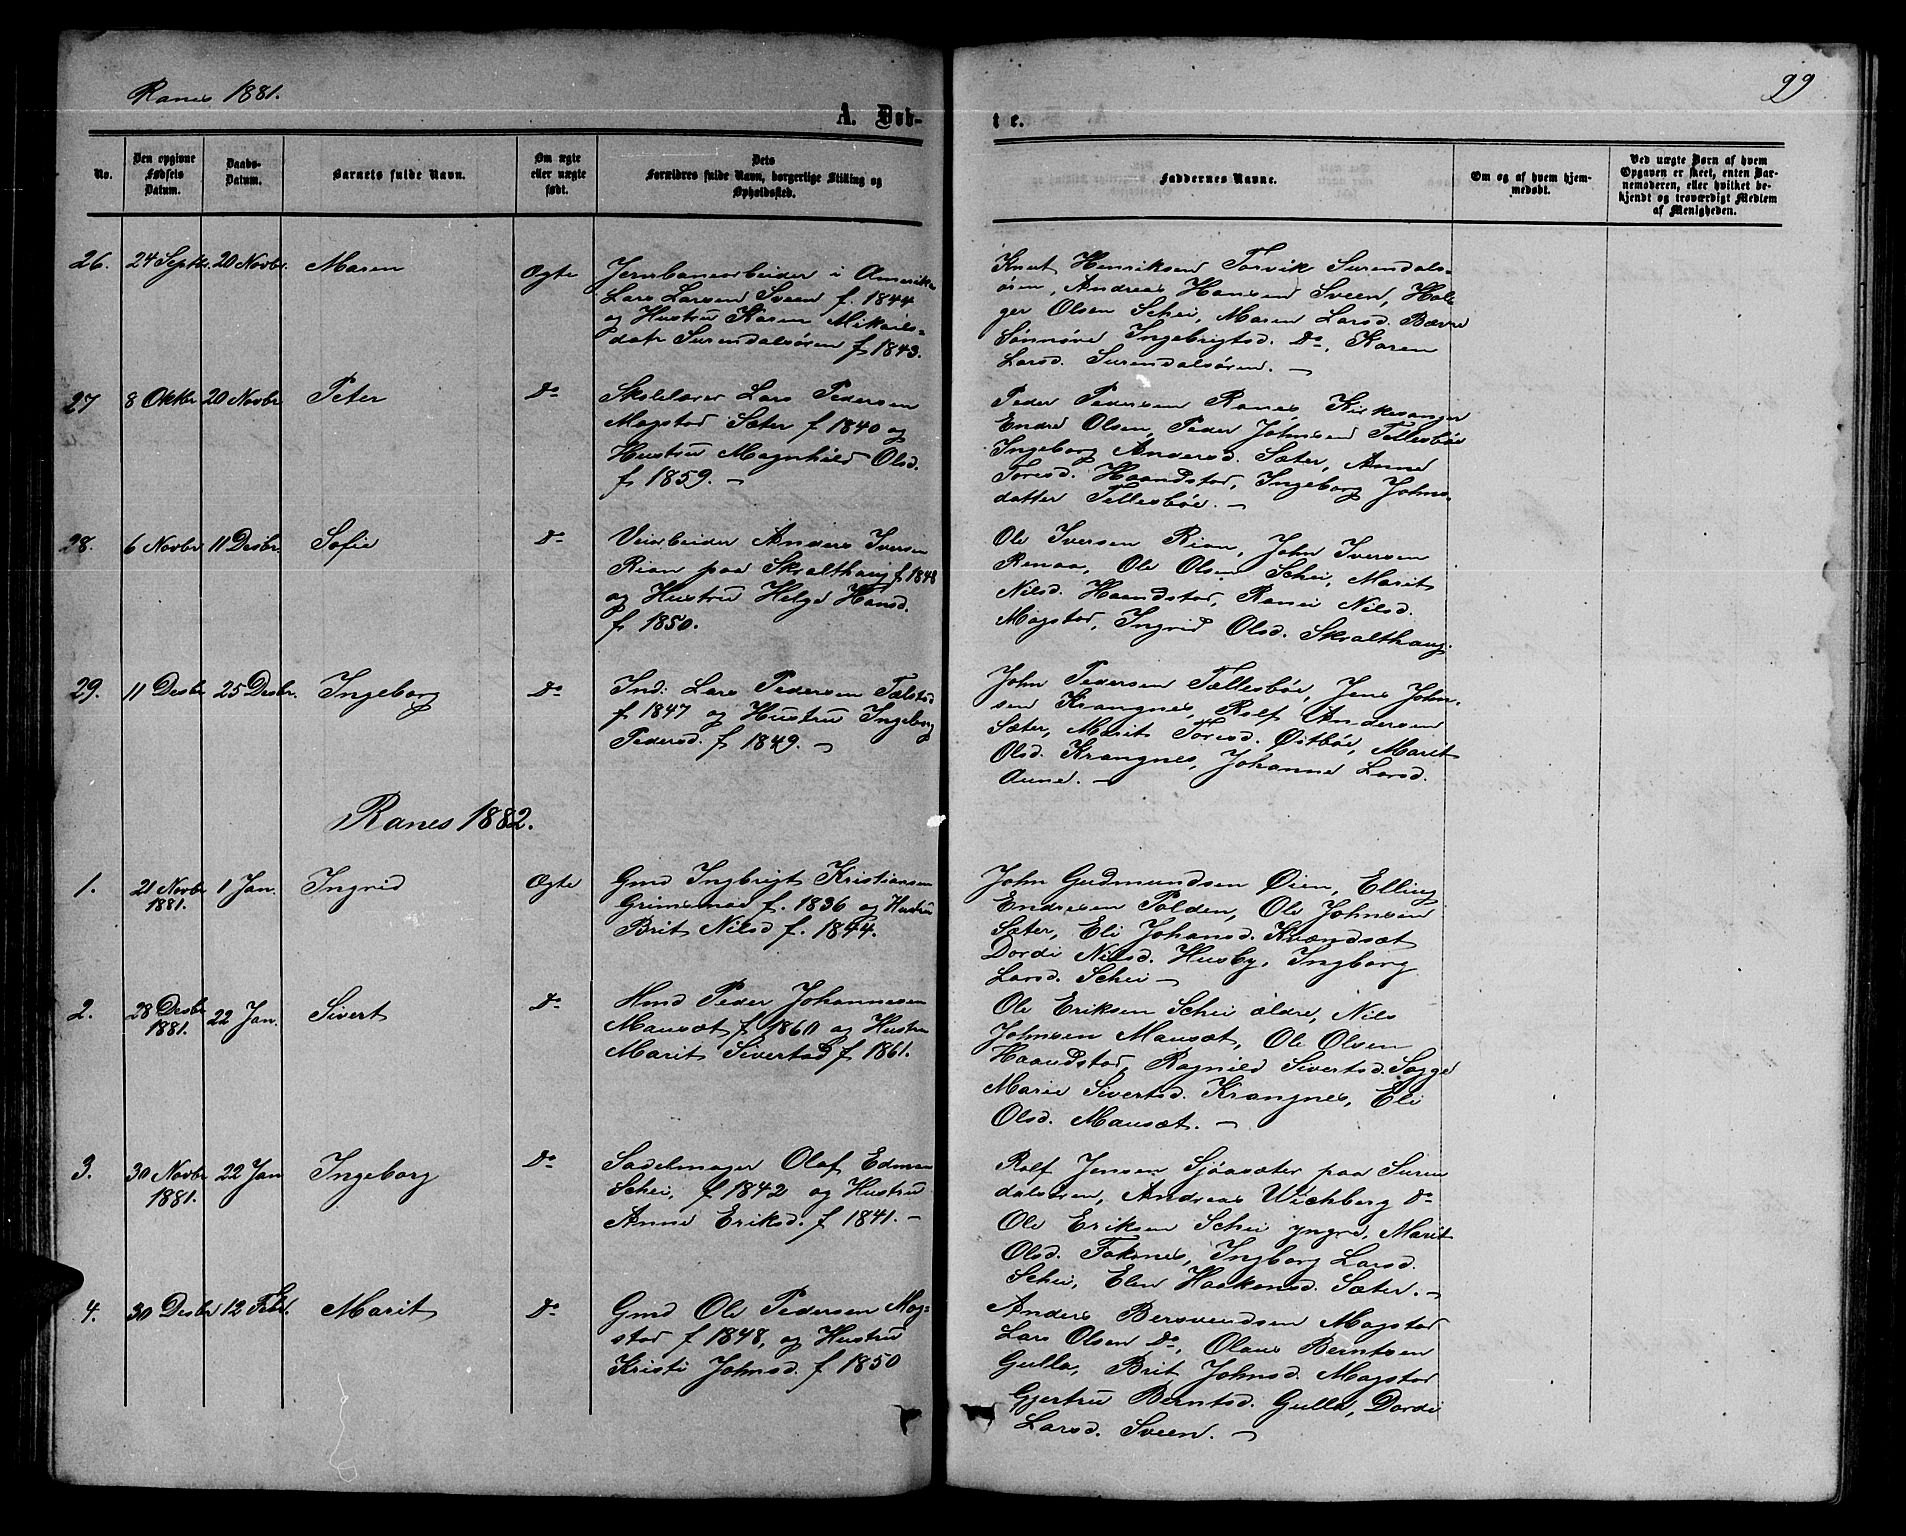 Ranes 1881.
99
A. Døb-
te.
No.
Den opgivne Fødsels Datum.
Daabs-Datum.
Barnets fulde Navn.
Om ægte eller uægte født.
Dets Forældres fulde Navn, borgerlige Stilling og Opholdssted.
Faddernes Navne.
Om og af hvem hjemmedøbt.
Ved uægte Børn af hvem Opgaven er skeet, enten Barnemoderen, eller hvilket bekjendt og troværdigt Medlem af Menigheden.
26. 24 Septbr. 20 Novbr. Maren Ægte
Jernbanearbeider i Amerika
Lars Larsen Sveen f. 1844
og Hustru Karen Mikaels-
datr Surendalsøren f 1843.
Knut Henriksen Torvik Surendals-
øren, Andreas Hansen Sveen, Hol-
ger Olsen Schei, Maren Larsd. Bævre
Sønnøve Ingebrigtsd. Do, Karen
Larsd. Surendalsøren. –
27 8 Oktbr 20 Novbr Peter Do
Skolelærer Lars Pedersen
Mogstad Sæter f 1840 og
Hustru Magnhild Olsd.
f 1859. –
Peder Pedersen Ranes, Kirkesanger
Endre Olsen, Peder Johnsen Tellesbøe
Ingeborg Andersd. Sæter, Anne
Toresd. Haandstad, Ingeborg Johns-
datter Tellesbøe. –
28. 6 Novbr 11 Desbr. Sofie Do
Veiarbeider Anders Iversen
Rian paa Skralthaug f 1848
og Hustru Helge Hansd.
f 1850.
Ole Iversen Rian, John Iversen
Renaa, Ole Olsen Schei, Marit
Nilsd. Haandstad, Ranei Nilsd.
Mogstad, Ingrid Olsd. Skralthaug.
29. 11 Desbr 25 Desbr. Ingeborg Do
Ind: Lars Pedersen Tælstad
f 1847 og Hustru Ingeborg
Pedersd. f 1849. –
John Pedersen Tællesbøe, Jens John-
sen Krangnes, Rolf Andersen
Sæter, Marit Toresd. Østbøe, Marit
Olsd. Krangnes, Johanne Larsd.
Aune. –
Ranes 1882.
1. 21 Novbr 1881. 1 Jan. Ingrid Ægte
Gmd Ingbrigt Kristiansen
Grimsmoe f. 1836 og Hustru
Brit Nilsd f. 1844.
John Gudmundsen Øien, Elling
Endresen Polden, Ole Johnsen
Sæter, Eli Johansd. Kvændsæt
Dordi Nilsd. Husby, Ingborg
Larsd. Schei –
2. 28 Desbr 1881. 22 Jan. Sivert Do
Hmd Peder Johannesen
Mausæt f 1860 og Hustru
Marit Sivertsd f 1861.
Ole Eriksen Schei ældre, Nils
Johnsen Mausæt, Ole Olsen
Haandstad, Ragnild Sivertsd. Sogge
Marie Sivertsd. Krangnes, Eli
Olsd. Mausæt. –
3. 30 Novbr 1881. 22 Jan Ingeborg Do
Sadelmager Olaf Edman
Schei, f 1842 og Hustru
Anne Eriksd. f 1841. –
Rolf Jensen Sjøasæter paa Suren
dalsøren, Andreas Wichberg Do
Ole Eriksen Schei yngre, Marit
Olsd. Foknes, Ingborg Larsd.
Schei, Elen Haakensd. Sæter. –
4. 30 Desbr 12 Febr. Marit Do
Gmd Ole Pedersen Mog-
stad f 1848, og Hustru
Kristi Johnsd. f 1850
Anders Bersvendsen Mogstad
Lars Olsen Do, Olaus Berntsen
Gulla, Brit Johnsd. Mogstad
Gjertru Berntsd. Gulla, Dordi
Larsd. Sveen. –